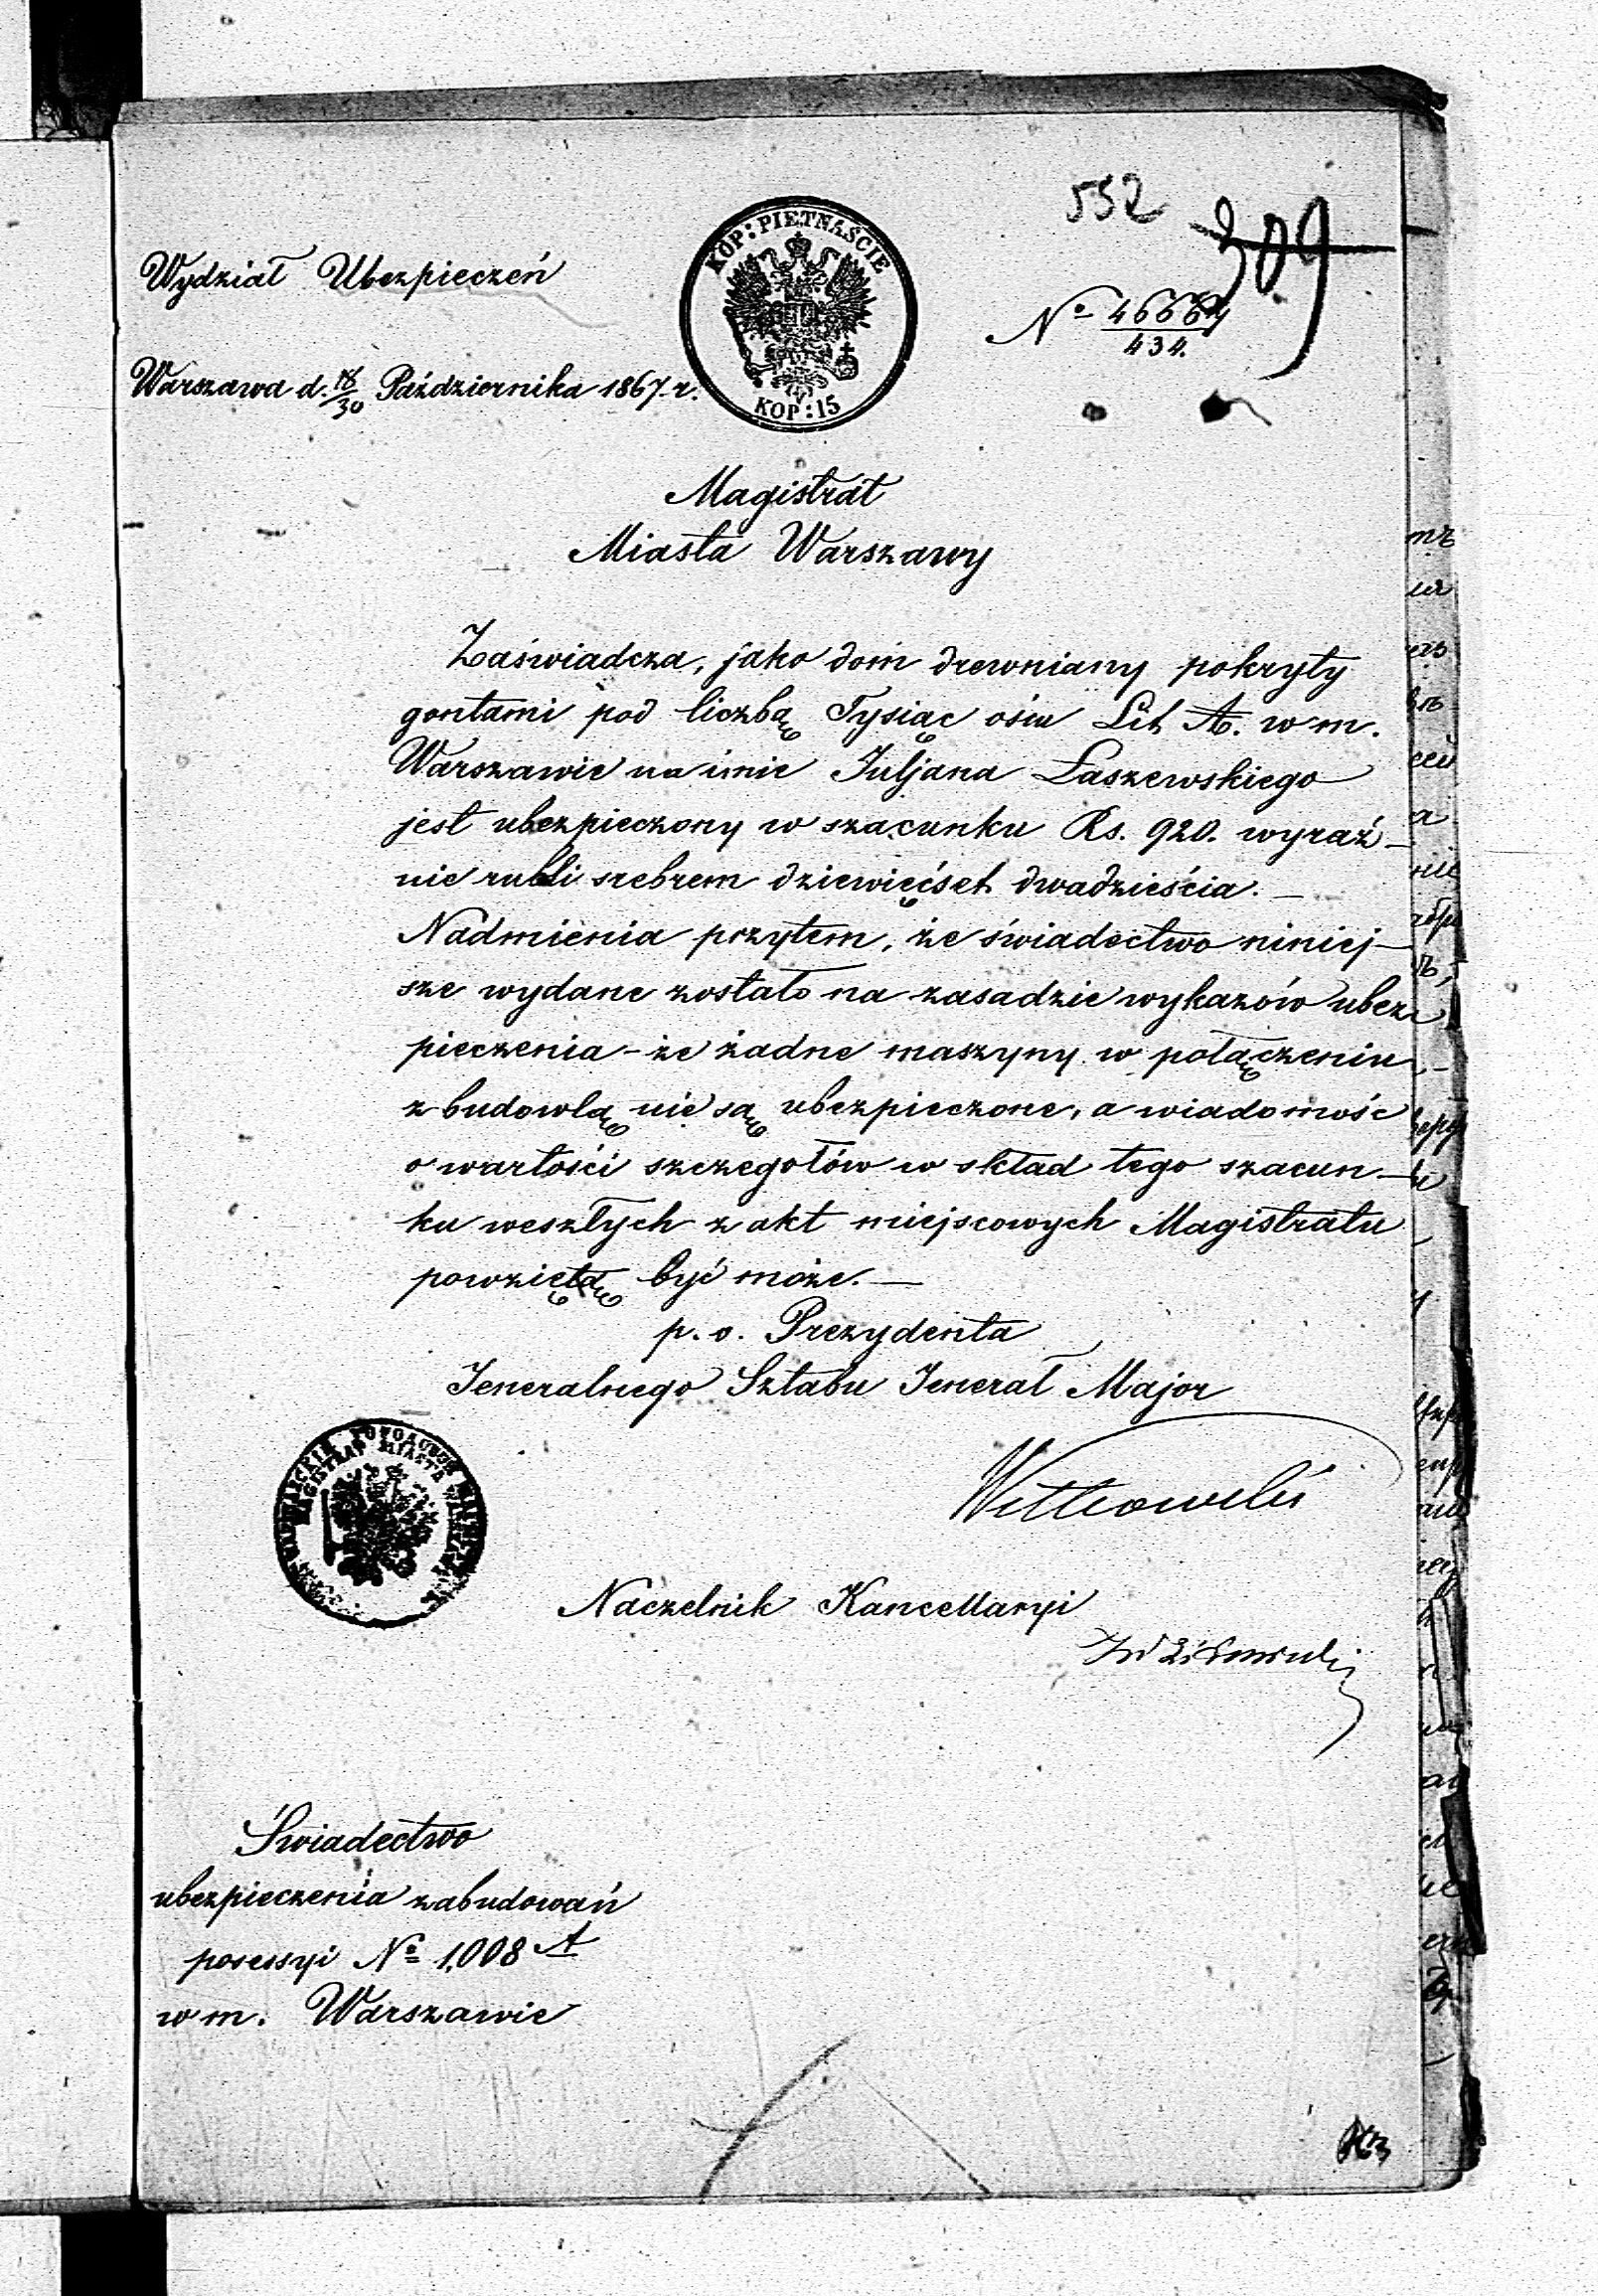 552
309
Wydział Ubezpieczeń
KOP: PIĘTNAŚCIE
KOP: 15
№ 46664
434.
Warszawa d. 18/30 Października 1867 r.
Magistrat
Miasta Warszawy
Zaświadcza, jako dom drewniany pokryty
gontami pod liczbą Tysiąc ośm Lit A. w m.
Warszawie na imie Juljana Laszewskiego
jest ubezpieczony w szacunku Rs. 920. wyraź-
nie rubli srebrem dziewięćset dwadzieścia. —
Nadmienia przytem, że świadectwo niniej-
sze wydane zostało na zasadzie wykazów ubez-
pieczenia - że żadne maszyny w połączeniu
z budowlą nie są ubezpieczone, a wiadomość
o wartości szczegołów w skład tego szacun-
ku weszłych z akt miejscowych Magistratu
powziętą być może. —
p. o. Prezydenta
Jeneralnego Sztabu Jenerał Major
Witkowski
MAGISTRAT MIASTA WARSZAWY
Naczelnik Kancellaryi
Świadectwo
ubezpieczenia zabudowań
posessyi № 1,008 A
w m. Warszawie